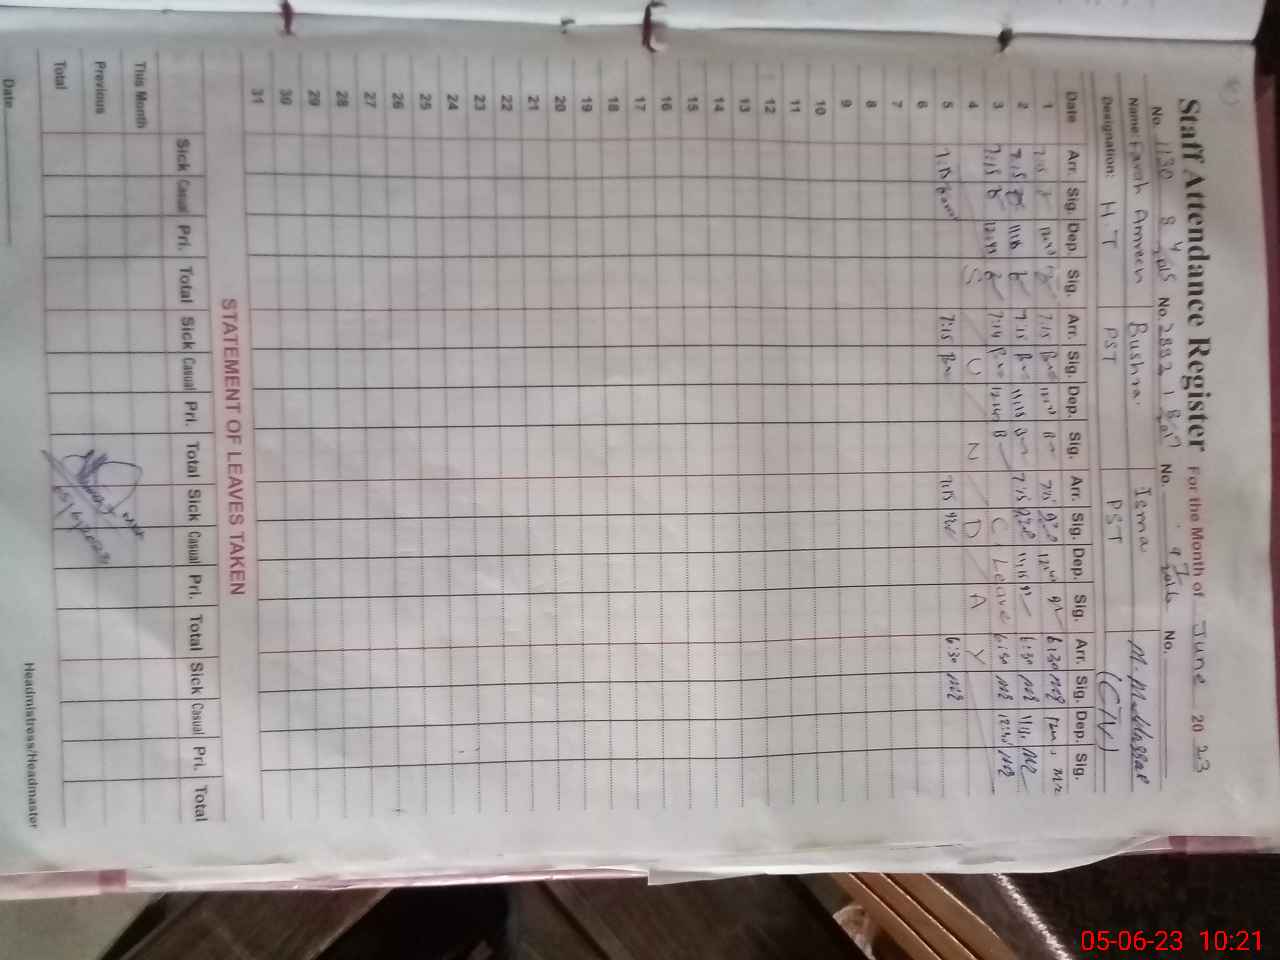 Staff Attendance Register For the Month of June 2023
No. 1130 8 4 2015 No. 2892 1 8 No. 9 2016 No.
Name: Farah Amreen Bushra. Isma M. Muddassar
Designation: H.T PST PST (C/IV)
Date Arr. Sig. Dep. Sig. Arr. Sig. Dep. Sig. Arr. Sig. Dep. Sig. Arr. Sig. Dep. Sig.
1 7:15 7:15 7:15 6:30
2 7:15 11:15 7:15 11:15 7:15 11:15 6:30
3 7:15 12:43 7:14 C. Leave 6:30 12:30
4 S U N D A Y
5 7:15 7:15 7:15 6:30
6
7
8
9
10
11
12
13
14
15
16
17
18
19
20
21
22
23
24
25
26
27
28
29
30
31
STATEMENT OF LEAVES TAKEN
Sick Casual Pri. Total Sick Casual Pri. Total Sick Casual Pri. Total Sick Casual Pri. Total
This Month
Previous
Total
05/6/2023
Headmistress/Headmaster
Date
05-06-23 10:21